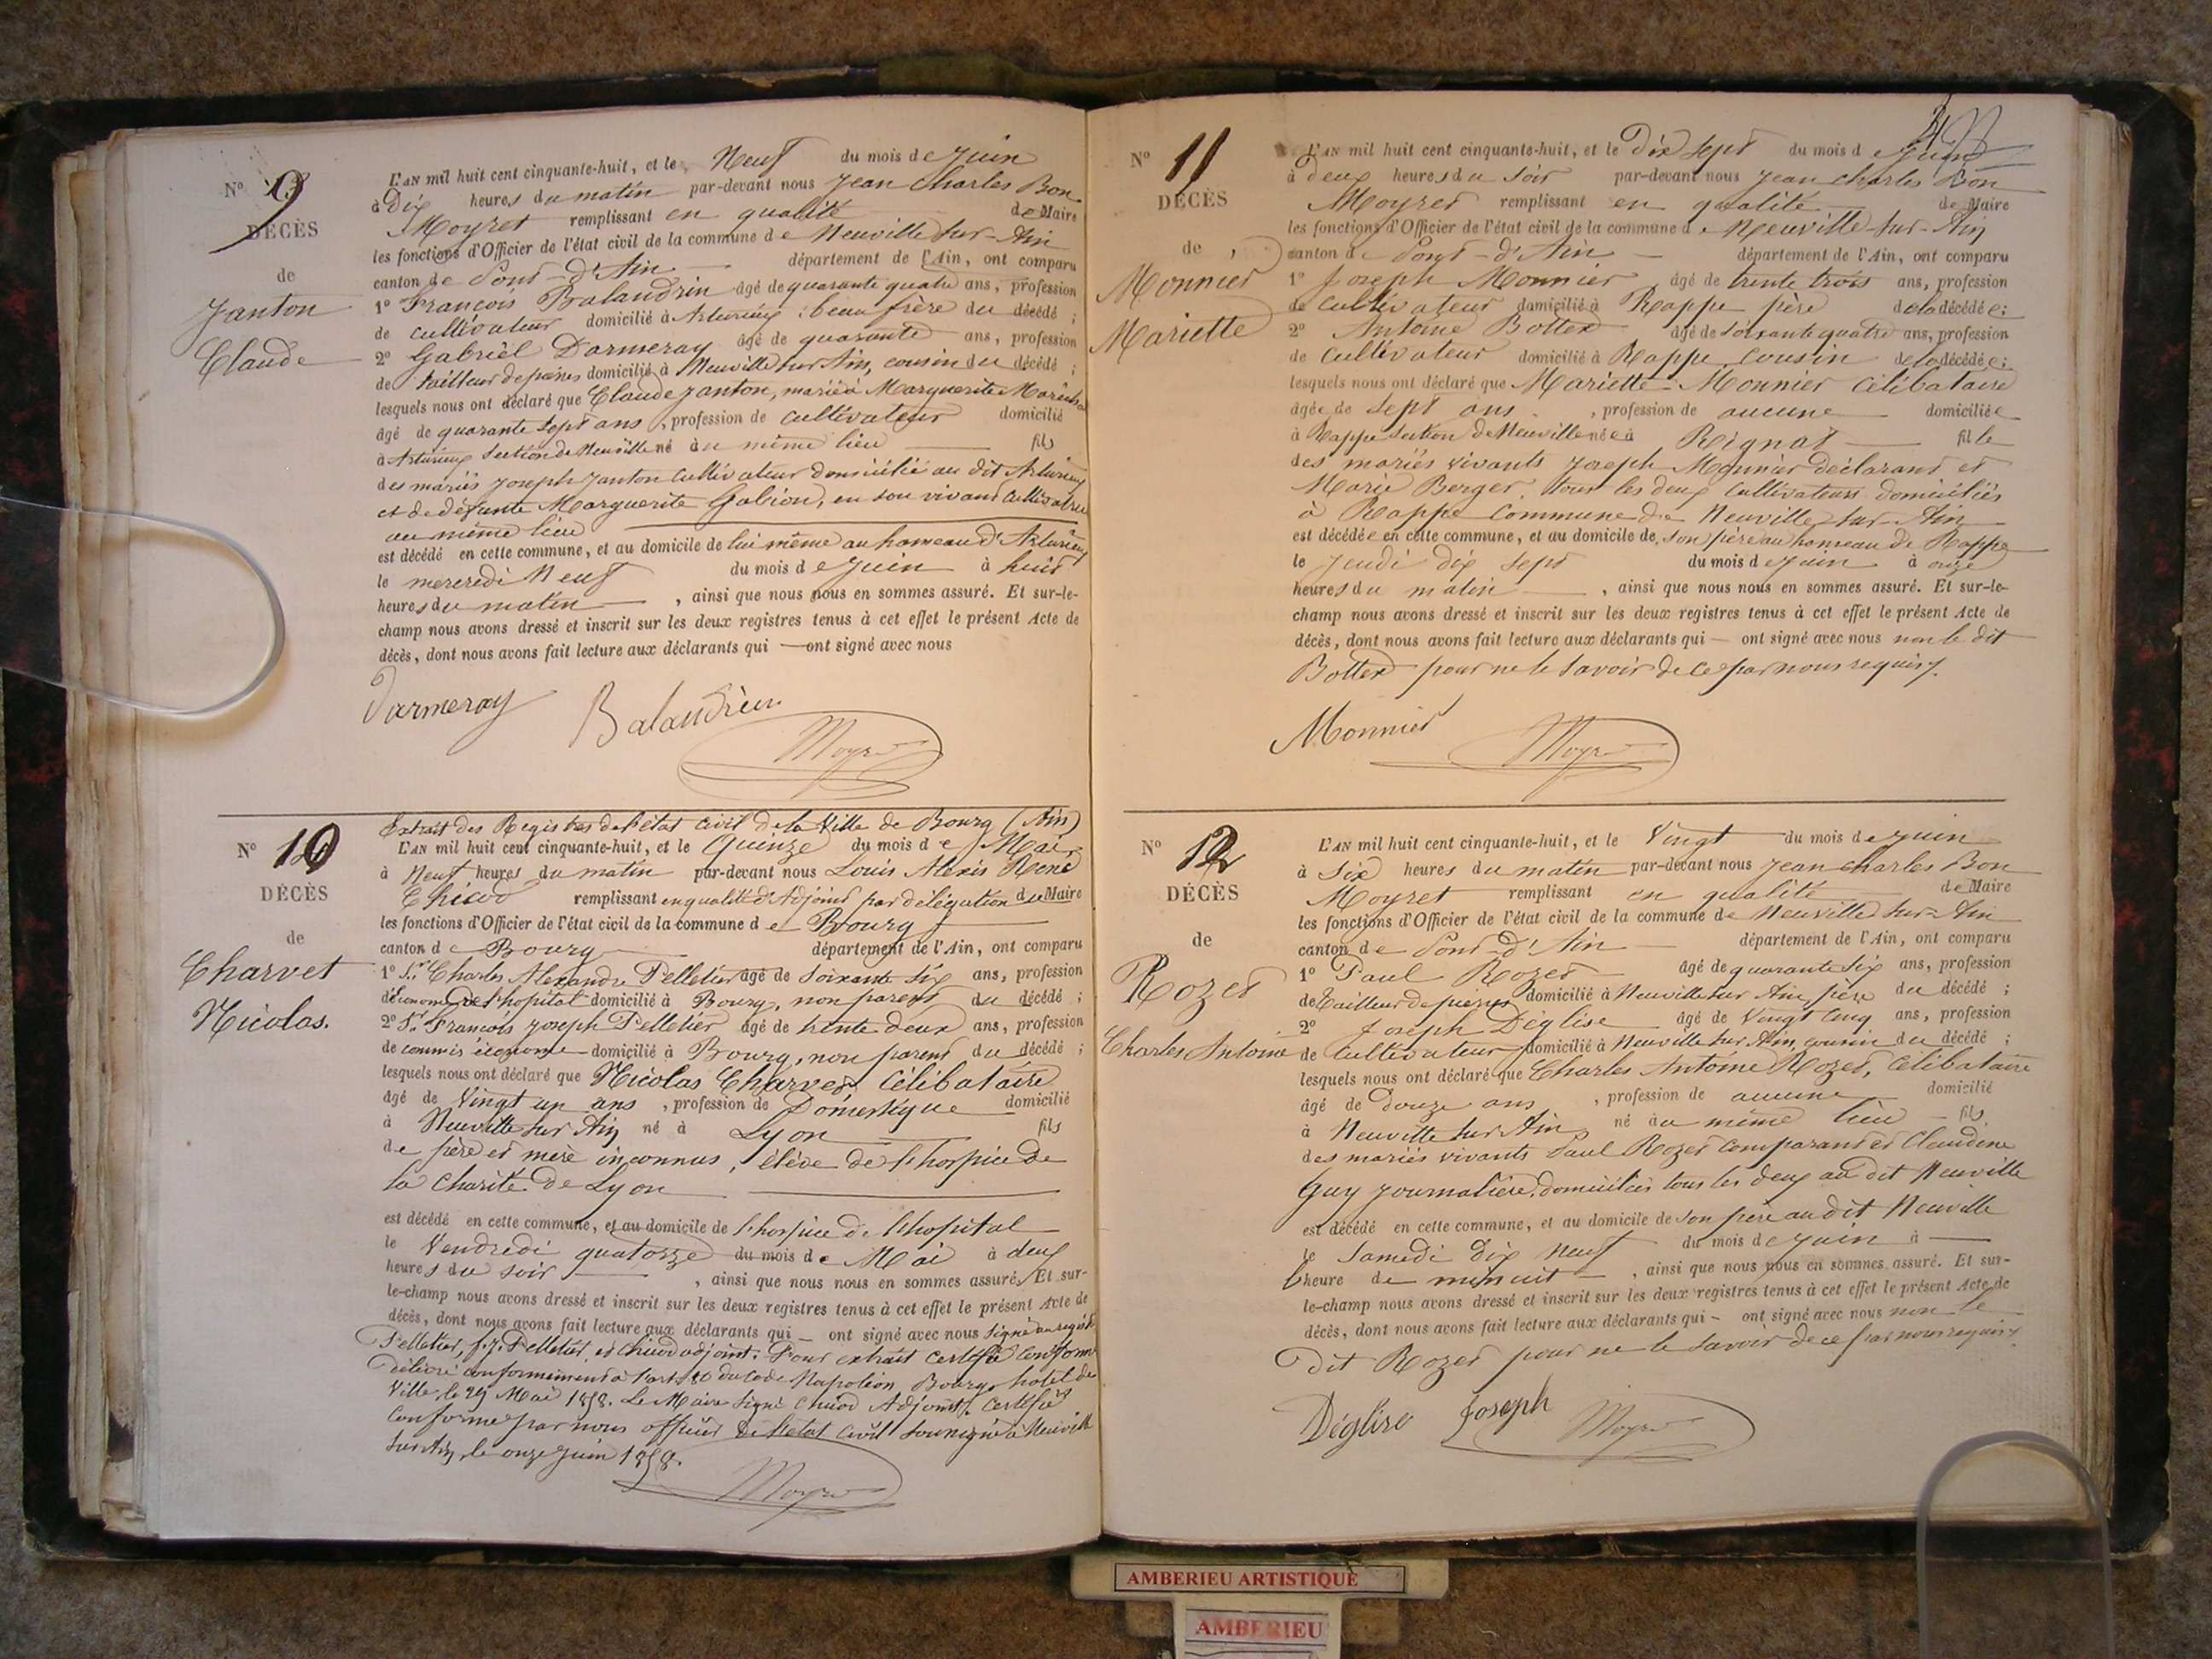 N° 9
DÉCÈS
de
Janton
Claude
L'AN mil huit cent cinquante-huit, et le Neuf du mois de Juin
à Dix heures du matin par-devant nous Jean Charles Bon
Moyret remplissant en qualité de Maire
les fonctions d'Officier de l'état civil de la commune de Neuville sur-Ain
canton de Pont-d'Ain département de l'Ain, ont comparu
1° François Balandrin âgé de quarante quatre ans, profession
de cultivateur domicilié à beau frère du décédé ;
2° Gabriel Darmeray âgé de quarante ans, profession
de tailleur de pierres domicilié à Neuville sur Ain, cousin du décédé ;
lesquels nous ont déclaré que Claude Janton, marié à Marguerite
âgé de quarante sept ans, profession de cultivateur domicilié
à section de Neuville né au même lieu fils
des mariés Joseph Janton cultivateur domicilié au dit
et de défunte Marguerite Gabion, en son vivant cultivatrice
au même lieu
est décédé en cette commune, et au domicile de lui même au hameau d'
le mercredi Neuf du mois de Juin à huit
heures du matin , ainsi que nous nous en sommes assuré. Et sur-le-
champ nous avons dressé et inscrit sur les deux registres tenus à cet effet le présent Acte de
décès, dont nous avons fait lecture aux déclarants qui — ont signé avec nous
Darmeray Balandrin
Moyret
N° 10
DÉCÈS
de
Charvet
Nicolas.
Extrait des Registres de l'état civil de la Ville de Bourg (Ain)
L'AN mil huit cent cinquante-huit, et le Quinze du mois de Mai
à Neuf heures du matin par-devant nous Louis Alexis René
Chicod remplissant en qualité d'Adjoint par délégation du Maire
les fonctions d'Officier de l'état civil de la commune de Bourg
canton de Bourg département de l'Ain, ont comparu
1° Sr. Charles Alexandre Pelletier âgé de soixante six ans, profession
d'Econome de l'hopital domicilié à Bourg, non parent du décédé ;
2° Sr. François Joseph Pelletier âgé de trente deux ans, profession
de commis économe domicilié à Bourg, non parent du décédé ;
lesquels nous ont déclaré que Nicolas Charvet, Célibataire
âgé de Vingt un ans , profession de Domestique domicilié
à Neuville sur Ain né à Lyon fils
de père et mère inconnus, élève de l'hospice de
la Charité de Lyon
est décédé en cette commune, et au domicile de l'hospice de l'hopital
le Vendredi quatorze du mois de Mai à deux
heures du soir , ainsi que nous nous en sommes assuré. Et sur-
le-champ nous avons dressé et inscrit sur les deux registres tenus à cet effet le présent Acte de
décès, dont nous avons fait lecture aux déclarants qui — ont signé avec nous signé au registre
Pelletier, f.j. Pelletier, et Chicod adjoint. Pour extrait certifié conforme
Délivré conformément à l'art. 80 du Code Napoléon Bourg hotel de
Ville, le 29 Mai 1858. Le Maire signé Chicod Adjoint. Certifié
conforme par nous officier de l'état civil soussigné à Neuville
sur Ain, le onze Juin 1858.
Moyret
N° 11
DÉCÈS
de
Monnier
Mariette
L'AN mil huit cent cinquante-huit, et le Dix sept du mois de Juin
à deux heures du soir par-devant nous Jean Charles Bon
Moyret remplissant en qualité de Maire
les fonctions d'Officier de l'état civil de la commune de Neuville-sur-Ain
canton de Pont-d'Ain département de l'Ain, ont comparu
1° Joseph Monnier âgé de trente trois ans, profession
de cultivateur domicilié à Rappe père de la décédée ;
2° Antoine Bottex âgé de soixante quatre ans, profession
de cultivateur domicilié à Rappe cousin de la décédée ;
lesquels nous ont déclaré que Mariette Monnier célibataire
âgée de sept ans , profession de aucune domiciliée
à Rappe section de Neuville née à Rignat fille
des mariés vivants Joseph Monnier déclarant et
Marie Berger, tous les deux cultivateurs domiciliés
à Rappe commune de Neuville sur-Ain
est décédée en cette commune, et au domicile de son père au hameau de Rappe
le Jeudi dix sept du mois de Juin à onze
heures du matin , ainsi que nous nous en sommes assuré. Et sur-le-
champ nous avons dressé et inscrit sur les deux registres tenus à cet effet le présent Acte de
décès, dont nous avons fait lecture aux déclarants qui — ont signé avec nous non le dit
Bottex pour ne le savoir de ce par nous requis.
Monnier
Moyret
N° 12
DÉCÈS
de
Rozet
Charles Antoine
L'AN mil huit cent cinquante-huit, et le Vingt du mois de Juin
à Six heures du matin par-devant nous Jean Charles Bon
Moyret remplissant en qualité de Maire
les fonctions d'Officier de l'état civil de la commune de Neuville sur-Ain
canton de Pont-d'Ain département de l'Ain, ont comparu
1° Paul Rozet âgé de quarante six ans, profession
de Tailleur de pierres domicilié à Neuville sur Ain, père du décédé ;
2° Joseph Déglise âgé de Vingt cinq ans, profession
de cultivateur domicilié à Neuville sur Ain, cousin du décédé ;
lesquels nous ont déclaré que Charles Antoine Rozet, célibataire
âgé de douze ans , profession de aucune domicilié
à Neuville sur Ain né au même lieu — fils
des mariés vivants Paul Rozet comparant et Claudine
Guy journalière, domiciliés tous les deux au dit Neuville
est décédé en cette commune, et au domicile de son père au dit Neuville
le Samedi Dix Neuf du mois de Juin à —
l'heure de minuit , ainsi que nous nous en sommes assuré. Et sur-
le-champ nous avons dressé et inscrit sur les deux registres tenus à cet effet le présent Acte de
décès, dont nous avons fait lecture aux déclarants qui — ont signé avec nous non le
dit Rozet pour ne le savoir de ce par nous requis.
Déglise Joseph Moyret
AMBERIEU ARTISTIQUE
AMBERIEU